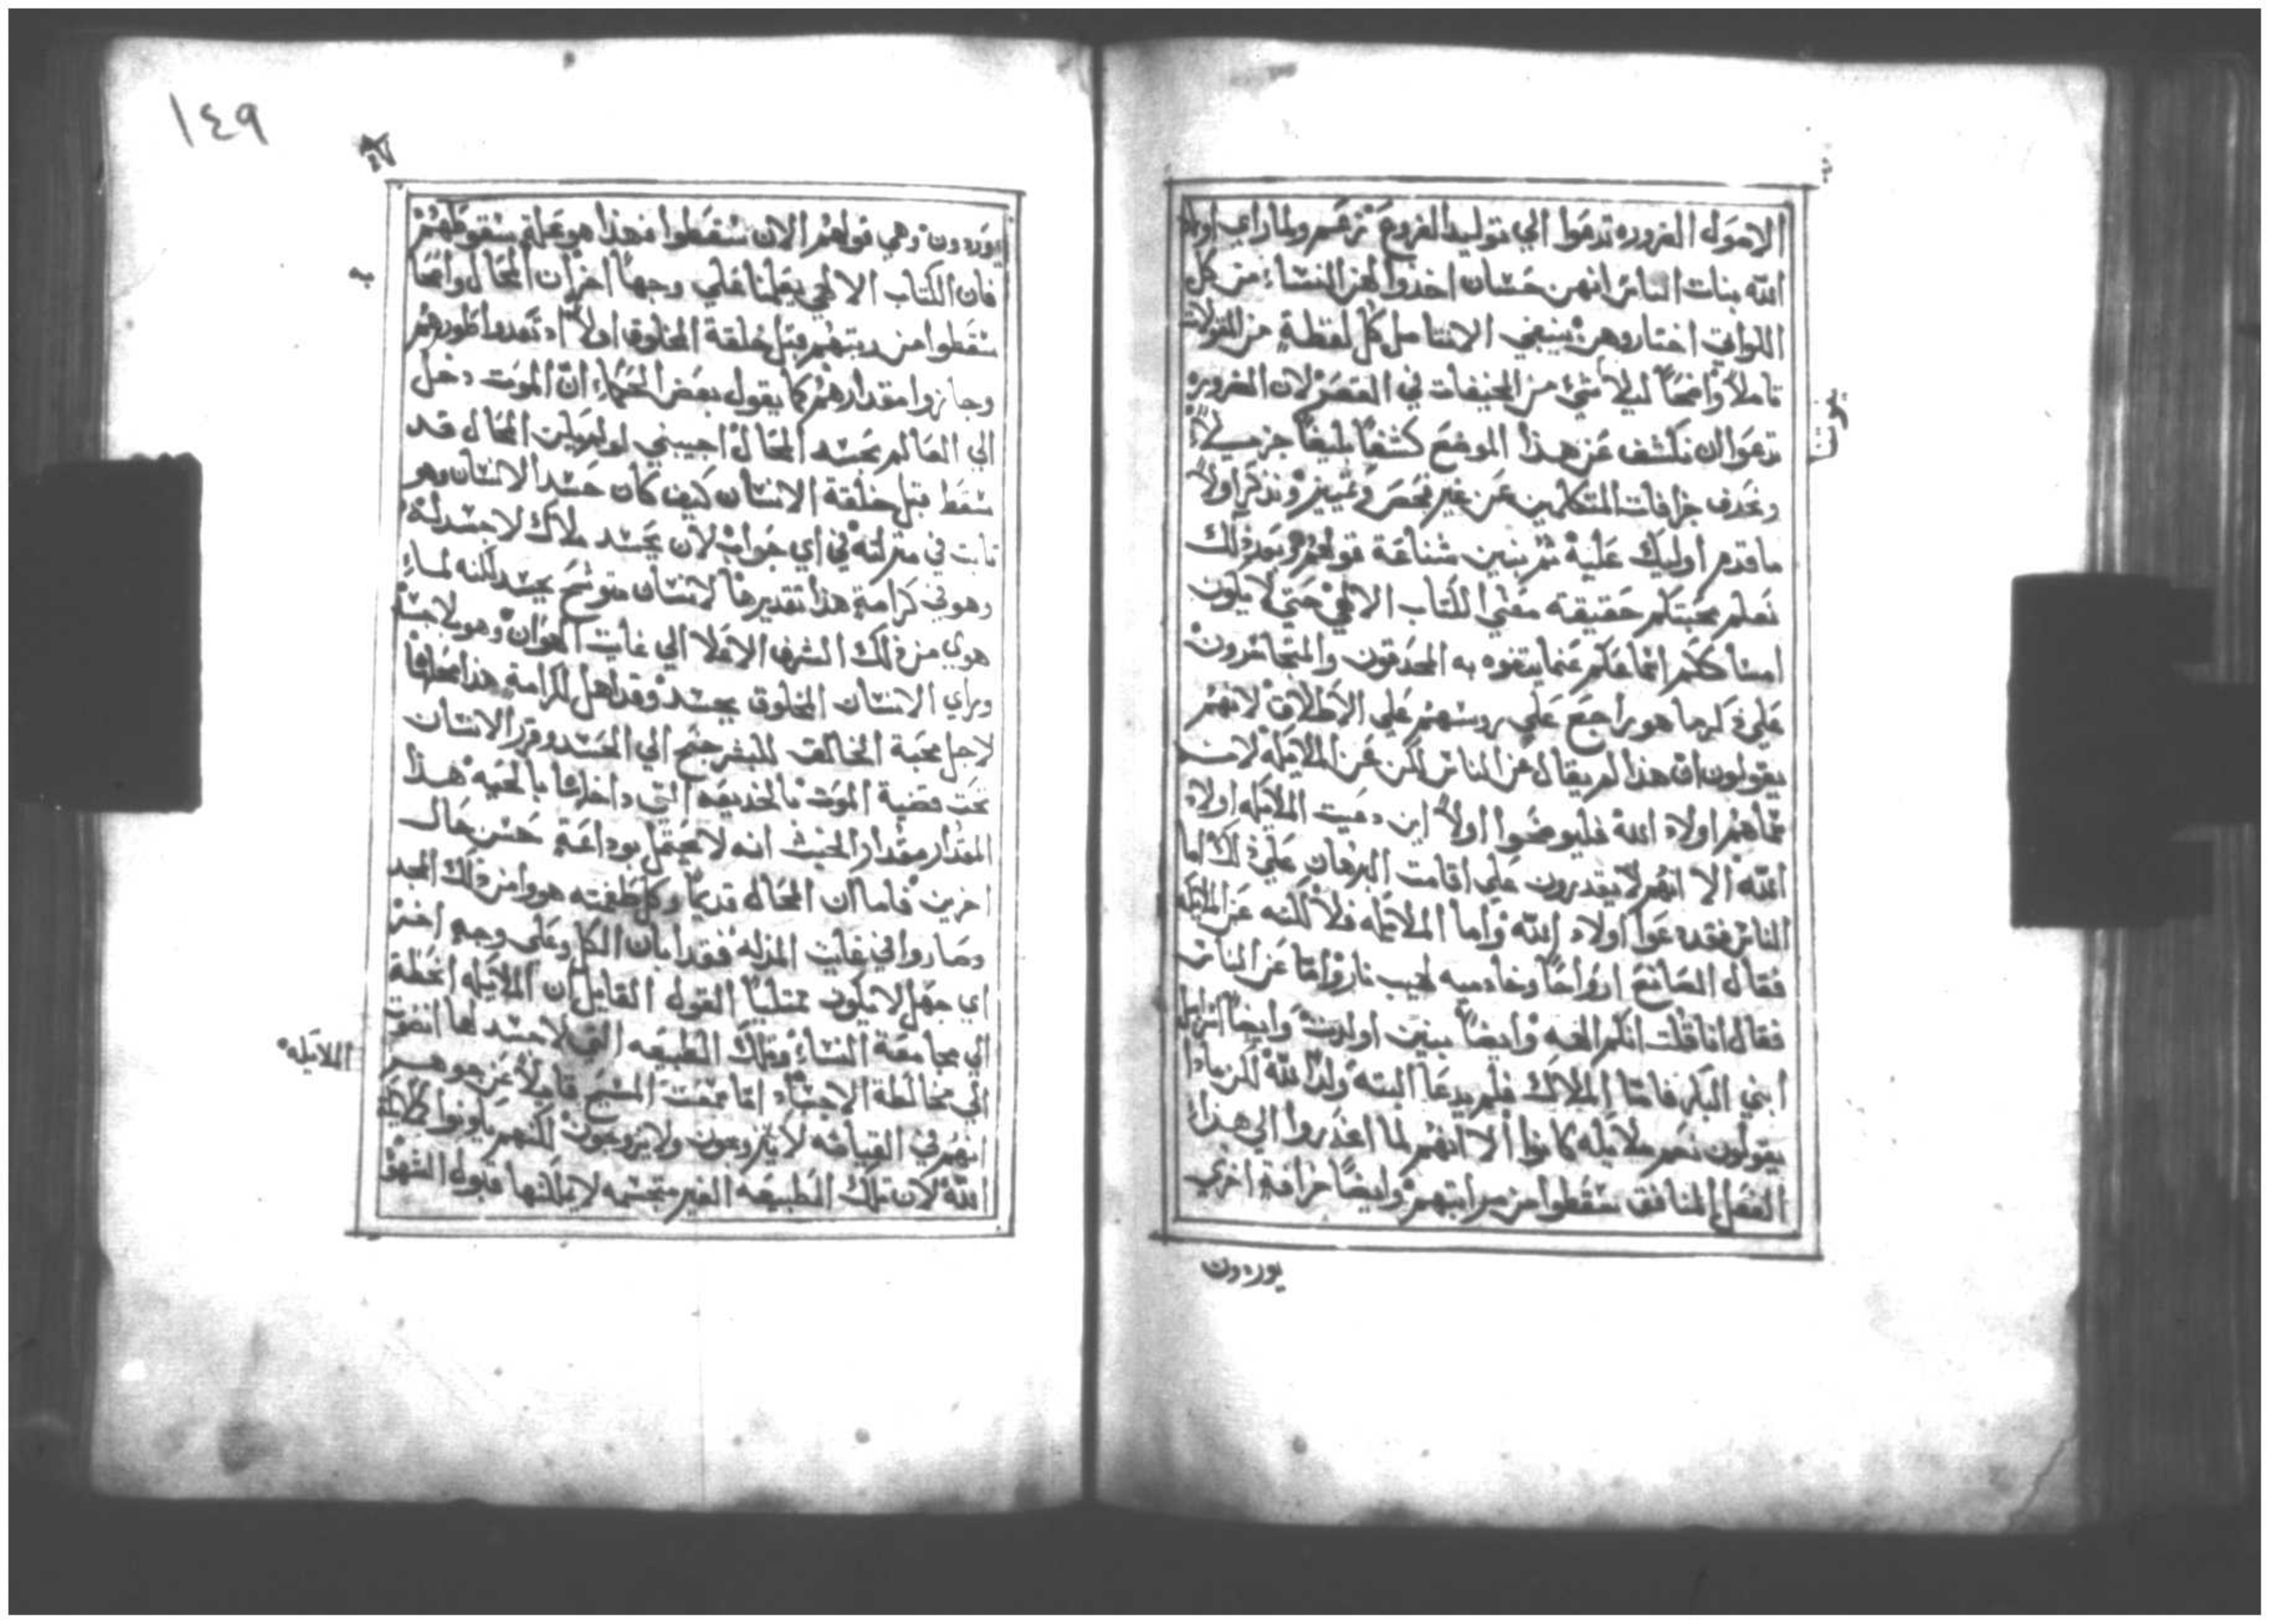 الاصول الضروره تدعوا الي توليد الفروع نزعم ولما راي اولاد
الله بنات الناس انهن حسان اخذوا لهن النساء من كل
اللواتي اختاروهن ينبغي الان نتامل كل لفظة من المقولات
تاملاً واضحاً ليلا شي من المخيفات في القصر لان الضروره
تدعوا ان نكشف عن هذا الموضع كشفاً بليغاً جزيلاً
ونحذف خرافات المتكلمين عن غير فحص وتمييز ونذكر اولاً
ما قدم اوليك عليه ثم نبين شناعة قولهم وبعد ذلك
نعلم محبتكم حقيقة معني الكتاب الالهي حتي لا يكون
اصناتكم انما عكم عندما يتفوه به المجدفون والمتجاسرون
علي ذكر ما هو راجع علي روسهم علي الاطلاق لانهم
يقولون ان هذا لم يقال عن الناس لكن عن الملايكه لانه
سماهم اولاد الله فليوضحوا اولاً اين دعيت الملايكه اولاد
الله الا انهم لا يقدرون علي اقامت البرهان علي ذلك اما
الناس فقد دعوا اولاد الله واما الملايكه فلا لكنه عن الملايكه
فقال الصانع ارواحاً وخادميه لهيب نار واما عن الناس
فقال انا قلت انكم الهه وايضاً بنين اولدت وايضاً اسراييل
ابني البكر فاما الملاك فلم يدعا البته ولداً لله لكن ماذا
يقولون نعم ملايكه كانوا الا انهم لما انحدروا الي هذا
الفعل المنافق سقطوا من مراتبهم وايضاً خرافة اخري
يوردون
١٤٩
يوردون وهي قولهم الان سقطوا فهذا هو علة سقوطهم
فان الكتاب الالهي يعلمنا علي وجهاً اخر ان المحال وامحا
سقطوا من رتبتهم قبل خلقة المخلوق اولاً اذ تعدوا طورهم
وجازوا مقدارهم كما يقول بعض الحكماء ان الموت دخل
الي العالم بحسد المحال اجيبني لو لم يكن المحال قد
سقط قبل خلقة الانسان كيف كان حسد الانسان وهو
ثابت في منزلته في اي جواب لان يحسد ملاك لا جسد له
وهو في كرامة هذا تقديرها لانسان متوشح بجسد لكنه لما
هوي من ذلك الشرف الاعلا الي غايت الهوان وهو بلا جسد
وراي الانسان المخلوق بجسد وقد اهل لكرامة هذا محلها
لاجل محبة الخالق للبشر جنح الي الحسد وقرر الانسان
تحت قضية الموت بالخديعه التي داخلها بالحيه هذا
المقدار مقدار الخبث انه لا يحتمل بوداعة حسن حال
اخرين فاما ان المحال قديماً وكل طغمته هووا من ذلك المجد
وصاروا في غايت المذله فقد ابان الكل وعلي وجه اخر
اي جهل لا يكون ممتلياً القول القايل ان الملايكه انحطة
الي مجامعة النساء وتلك الطبيعه التي لا جسد لها انضوت
الي مخالطة الاجساد اما سمعت المسيح قايلاً عن جوهر
الملايكه
انهم في القيامه لا يتزوجون ولا يزوجون لكنهم يكونوا كملايكة
الله لان تلك الطبيعه الغير متجسمه لا يمكنها قبول الشهوه